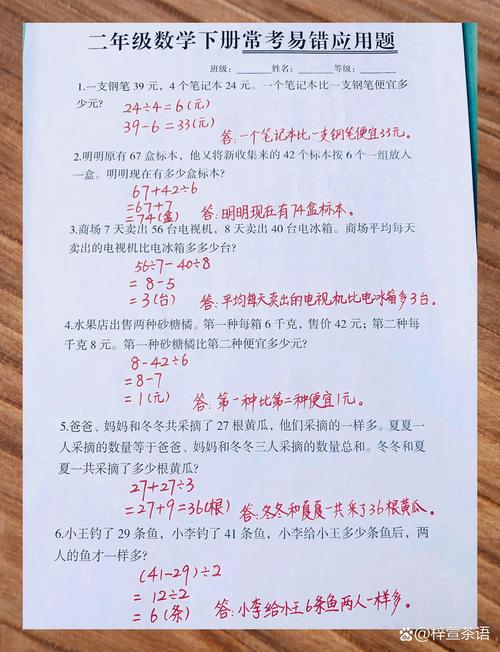 二年级数学下册常考易错应用题
班级：________姓名：________等级：________
1.一支钢笔 39 元，4 个笔记本 24 元。一个笔记本比一支钢笔便宜多
少元？
24÷4=6(元)
39-6=33(元)
答：一个笔记本比一支钢笔便宜33元。
2.明明原有 67 盒标本，他又将新收集来的 42 个标本按 6 个一组放入
一盒。明明现在有多少盒标本？
67+42÷6
=67+7
=74(盒) 答：明明现在有74盒标本。
3.商场 7 天卖出 56 台电视机，8 天卖出 40 台电冰箱。商场平均每天
卖出的电视机比电冰箱多多少台？
56÷7-40÷8
=8-5
=3(台) 答：平均每天卖出的电视机比电冰箱多3台。
4.水果店出售两种砂糖橘。第一种每箱 6 千克，售价 42 元；第二种每
千克 8 元。第一种砂糖橘比第二种便宜多少元？
8-42÷6
=8-7
=1(元) 答：第一种比第二种便宜1元。
5.爸爸、妈妈和冬冬共采摘了 27 根黄瓜，他们采摘的一样多。夏夏一
人采摘的数量等于爸爸、妈妈和冬冬三人采摘的数量总和。冬冬和夏
夏一共采摘了多少根黄瓜？
27+27÷3
=27+9=36(根) 答：冬冬和夏夏一共采了36根黄瓜。
6.小王钓了 29 条鱼，小李钓了 41 条鱼，小李给小王多少条鱼后，两
人的鱼才一样多？
(41-29)÷2
=12÷2
=6(条) 答：小李给小王6条鱼两人一样多。
@梓萱茶语